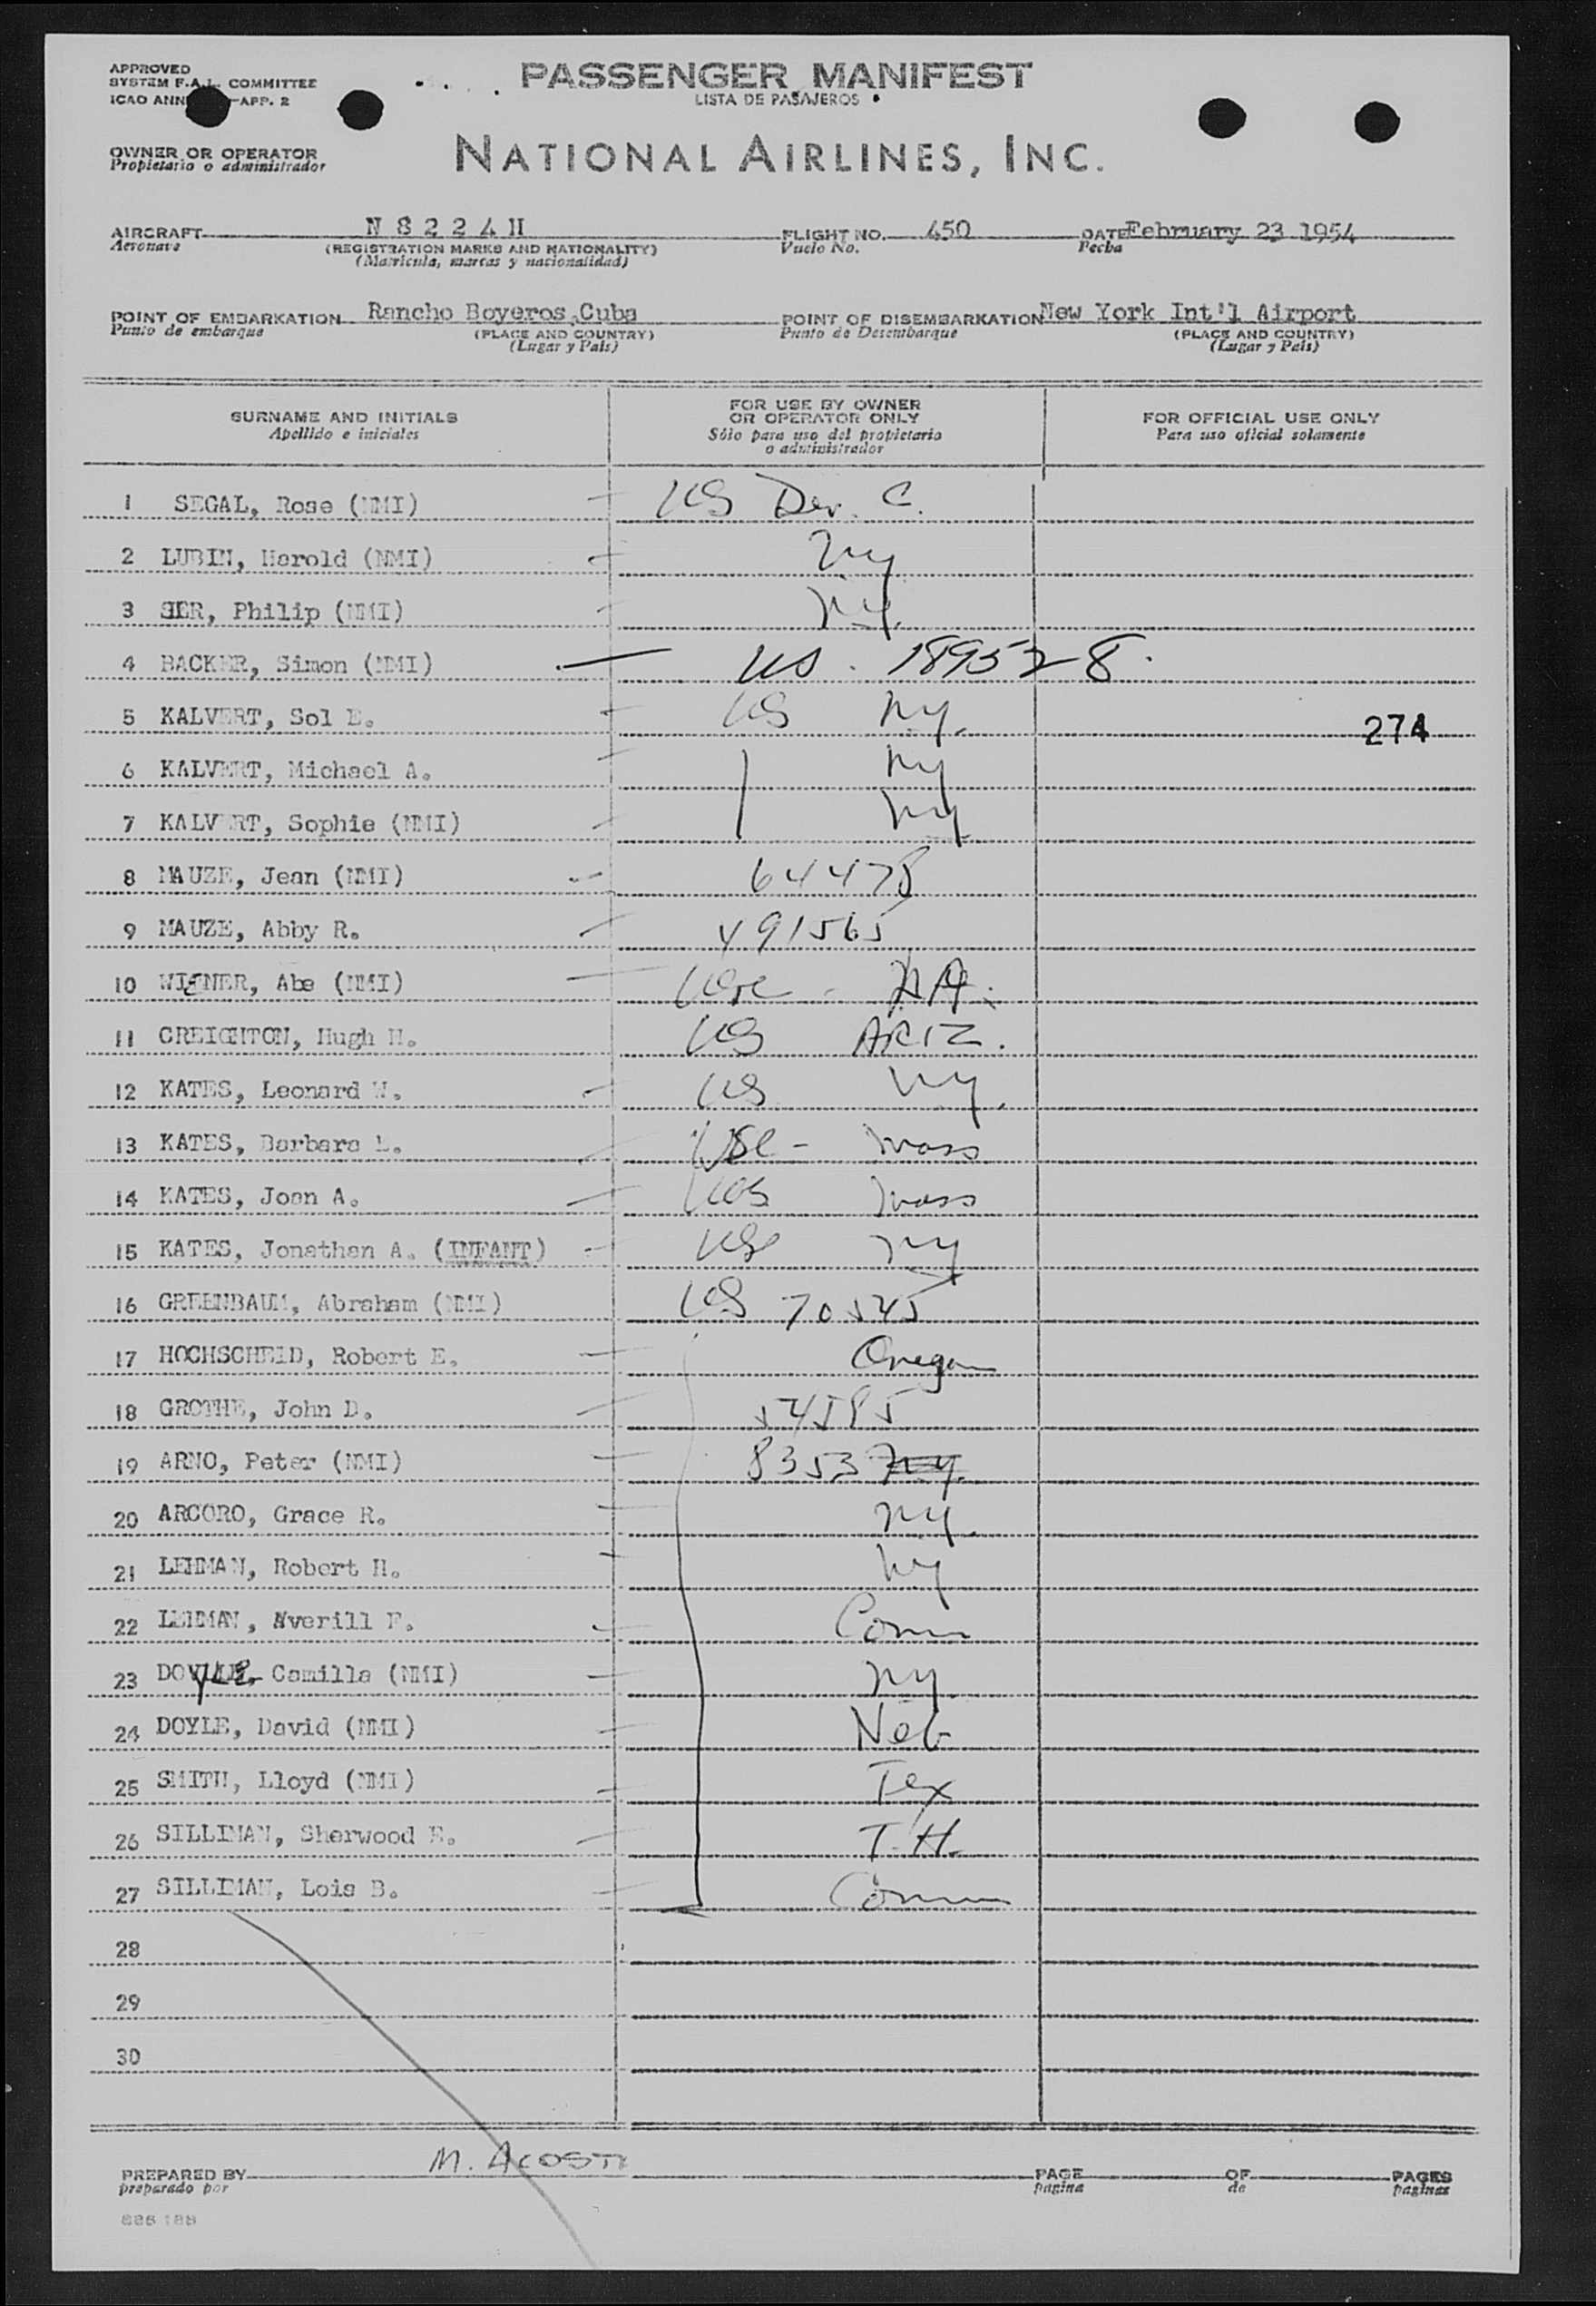 APPROVED
SYSTEM F.A.L. COMMITTEE
ICAO APP. 2
PASSENGER MANIFEST
LISTA DE PASAJEROS
OWNER OR OPERATOR
Propietario o administrador
NATIONAL AIRLINES, INC.
AIRCRAFT N 8 2 2 4 H FLIGHT NO. 450 DATE February 23 1954
Aeronave (REGISTRATION MARKS AND NATIONALITY) Vuelo No. Fecha
(Matricula, marcas y nacionalidad)
POINT OF EMBARKATION Rancho Boyeros, Cuba POINT OF DISEMBARKATION New York Int'l Airport
Punto de embarque (PLACE AND COUNTRY) Punto de Desembarque (PLACE AND COUNTRY)
(Lugar y País) (Lugar y País)
SURNAME AND INITIALS FOR USE BY OWNER OR OPERATOR ONLY FOR OFFICIAL USE ONLY
Apellido e iniciales Sólo para uso del propietario o administrador Para uso oficial solamente
1 SEGAL, Rose (NMI) US C.
2 LUBIN, Harold (NMI) NY
3 SER, Philip (NMI) NY.
4 BACKER, Simon (NMI) US. 189528.
5 KALVERT, Sol E. US NY.
274
6 KALVERT, Michael A. NY
7 KALVERT, Sophie (NMI) NY
8 MAUZE, Jean (NMI) 64478
9 MAUZE, Abby R. 491565
10 WIENER, Abe (NMI)
11 CREIGHTON, Hugh H. US ARIZ.
12 KATES, Leonard W. US NY.
13 KATES, Barbara L. USC - Mass
14 KATES, Joan A. US Mass
15 KATES, Jonathan A. (INFANT) US NY
16 GREENBAUM, Abraham (NMI) US 70545
17 HOCHSCHEID, Robert E. Oregon
18 GROTHE, John D. 54585
19 ARNO, Peter (NMI) 83537
20 ARCORO, Grace R. NY.
21 LEHMAN, Robert H. NY
22 LEHMAN, Averill F. Conn
23 DOYLE, Camilla (NMI) NY
24 DOYLE, David (NMI) Neb
25 SMITH, Lloyd (NMI) Tex
26 SILLIMAN, Sherwood E. T.H.
27 SILLIMAN, Lois B. Conn
28
29
30
PREPARED BY M. ACOSTA PAGE OF PAGES
preparado por pagina de paginas